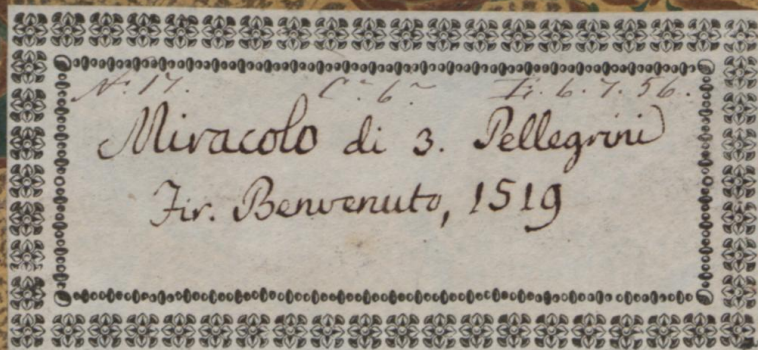 N. 17. C. 6. Fi. 6. 7. 56.
Miracolo di 3. Pellegrini
Fir. Benvenuto, 1519